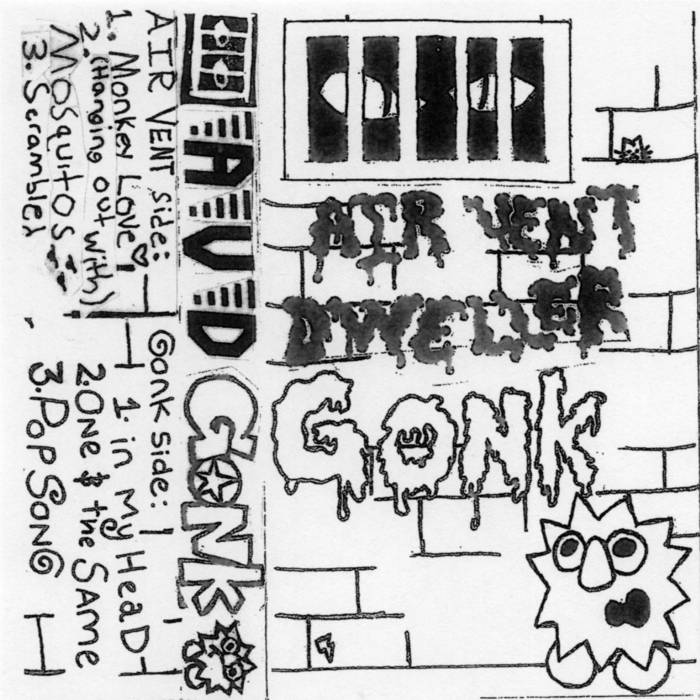 AIR VENT
DWELLER
GONK
AVD GONK
AIR VENT Side:
1. Monkey Love
2. (Hanging out with)
MOSQUITOS
3. Scrambled
Gonk Side:
1. in My HeaD
2. One & the SAME
3. POP SONG